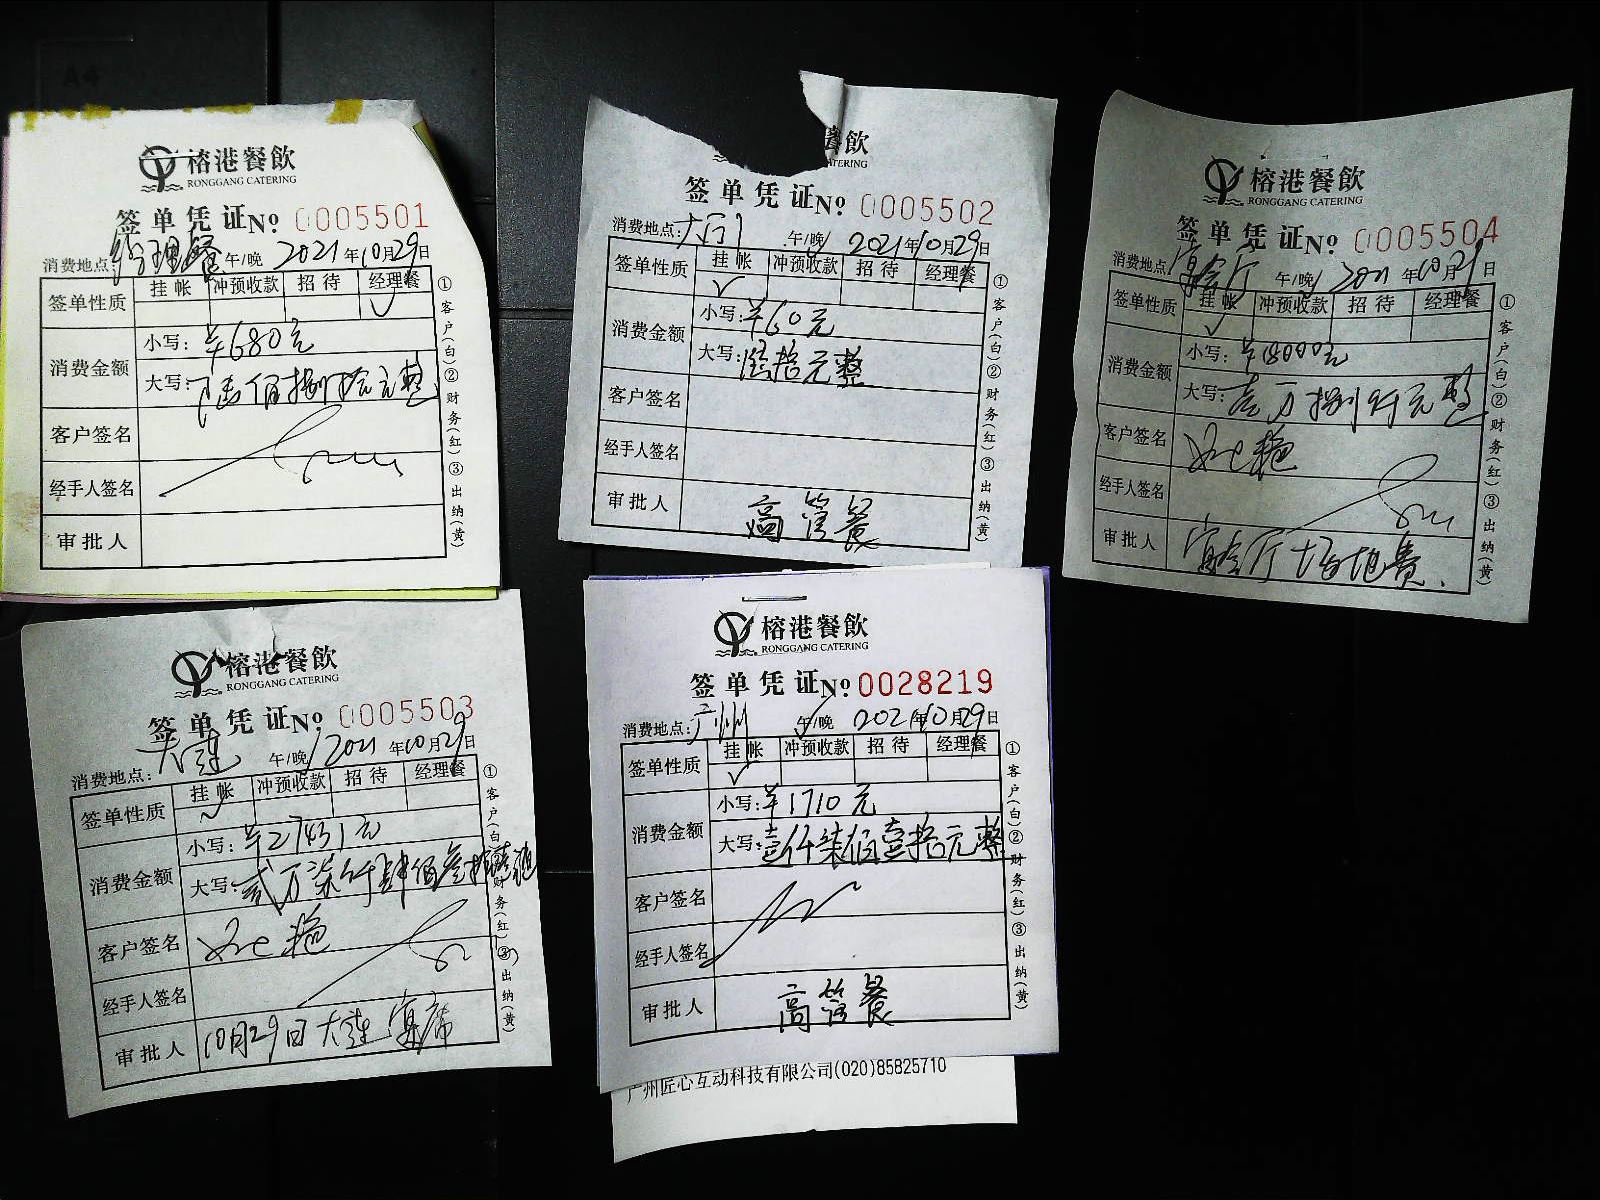 A4
榕港餐飲
RONGGANG CATERING
签单凭证 No 0005501
消费地点: 经理餐 午/晚 2021年10月29日
签单性质 挂帐 冲预收款 招待 经理餐
✓
消费金额 小写: ¥680元
大写: 陆佰捌拾元整
客户签名
经手人签名
审批人
①客户(白)②财务(红)③出纳(黄)
餐飲
CATERING
签单凭证 No 0005502
消费地点: 午/晚 2021年10月29日
签单性质 挂帐 冲预收款 招待 经理餐
✓
消费金额 小写: ¥60元
大写: 陆拾元整
客户签名
经手人签名
审批人 高管餐
①客户(白)②财务(红)③出纳(黄)
榕港餐飲
RONGGANG CATERING
签单凭证 No 0005504
消费地点: 宴会厅 午/晚 2021年10月29日
签单性质 挂帐 冲预收款 招待 经理餐
✓
消费金额 小写: ¥18000元
大写: 壹万捌仟元整
客户签名 艳
经手人签名
审批人 宴会厅场地费.
①客户(白)②财务(红)③出纳(黄)
榕港餐飲
RONGGANG CATERING
签单凭证 No 0005503
消费地点: 大连 午/晚 2021年10月29日
签单性质 挂帐 冲预收款 招待 经理餐
消费金额 小写: ¥27431元
大写: 贰万柒仟肆佰叁拾壹元
客户签名 艳
经手人签名
审批人 10月29日大连宴席
①客户(白)②财务(红)③出纳(黄)
榕港餐飲
RONGGANG CATERING
签单凭证 No 0028219
消费地点: 广州 午/晚 2021年10月29日
签单性质 挂帐 冲预收款 招待 经理餐
✓
消费金额 小写: ¥1710元
大写: 壹仟柒佰壹拾元整
客户签名
经手人签名
审批人 高管餐
①客户(白)②财务(红)③出纳(黄)
广州匠心互动科技有限公司(020)85825710